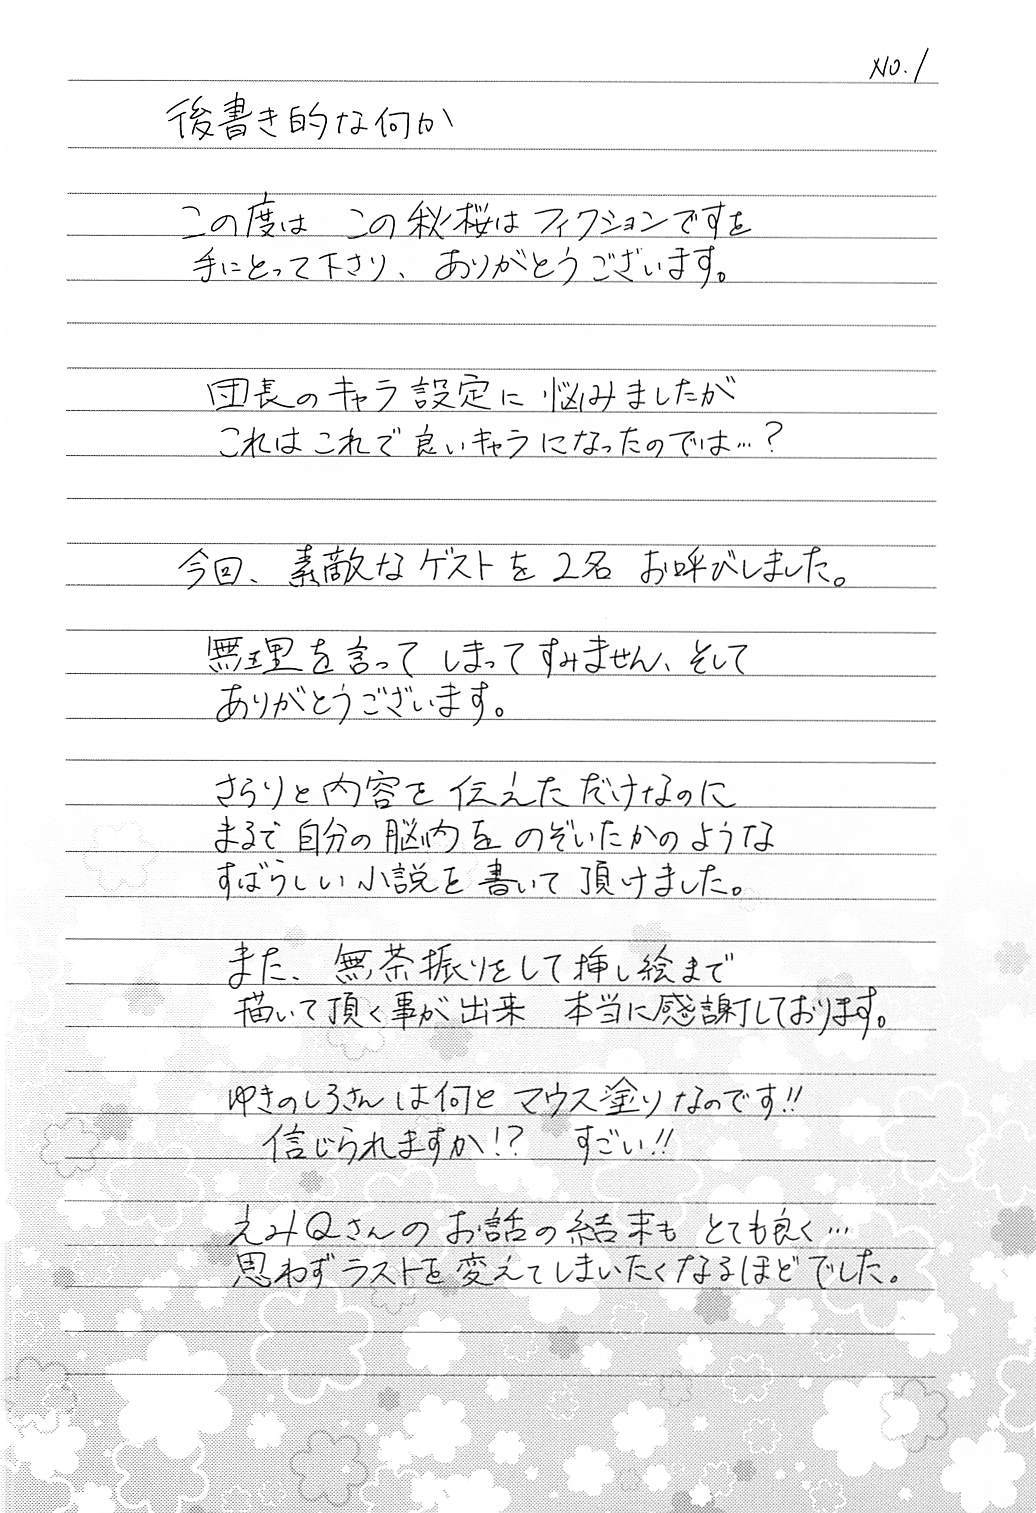 No.1
後書き的な何か
この度は この秋桜はフィクションですを
手にとって下さり、ありがとうございます。
団長のキャラ設定に悩みましたが
これはこれで良いキャラになったのでは…?
今回、素敵なゲストを2名 お呼びしました。
無理を言ってしまってすみません、そして
ありがとうございます。
さらりと内容を伝えただけなのに
まるで自分の脳内を のぞいたかのような
すばらしい小説を書いて頂けました。
また、無茶振りをして挿し絵まで
描いて頂く事が出来 本当に感謝しております。
ゆきのしろさんは何と マウス塗りなのです!!
信じられますか!? すごい!!
えみQさんのお話の結末も とても良く…
思わずラストを変えてしまいたくなるほどでした。